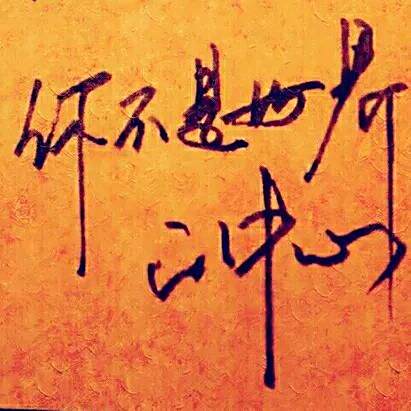 你不是世界
的中心